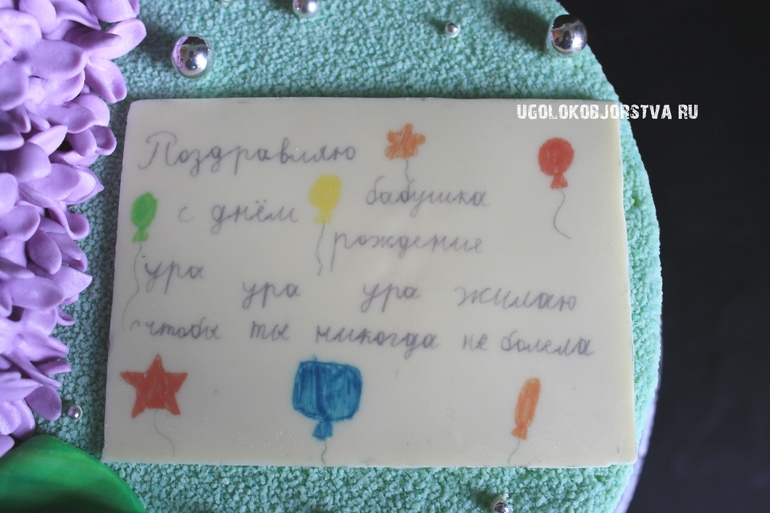 UGOLOKOBJORSTVA RU
Поздравляю
бабушка
с днём
рождение
ура ура ура жилаю
чтобы ты никогда не болела